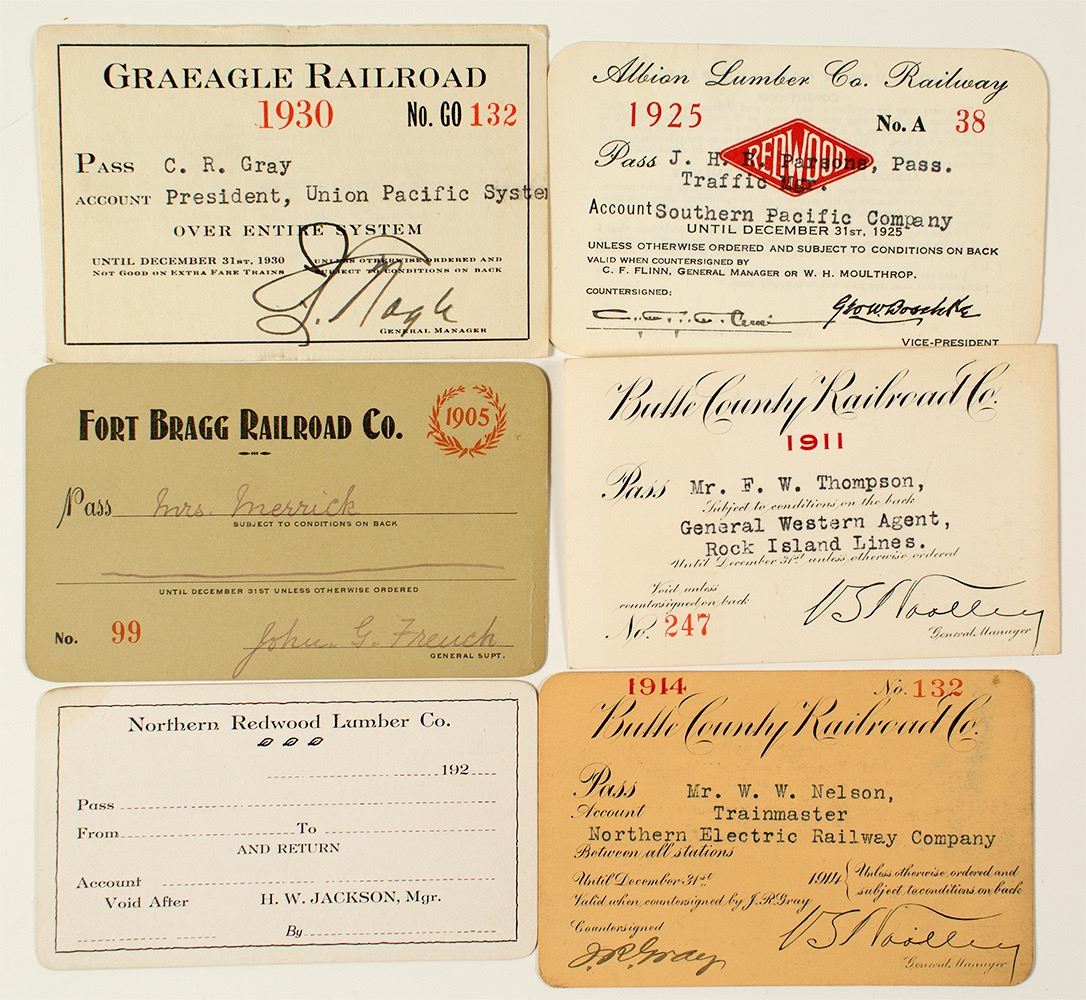 GRAEAGLE RAILROAD
1930 No. GO 132
PASS C. R. Gray
ACCOUNT President, Union Pacific System
OVER ENTIRE SYSTEM
UNTIL DECEMBER 31ST, 1930 UNLESS OTHERWISE ORDERED AND
NOT GOOD ON EXTRA FARE TRAINS SUBJECT TO CONDITIONS ON BACK
GENERAL MANAGER
Albion Lumber Co. Railway
1925 No. A 38
REDWOOD
Pass J. H. R. Parsons, Pass.
Traffic Mgr.
Account Southern Pacific Company
UNTIL DECEMBER 31ST, 1925
UNLESS OTHERWISE ORDERED AND SUBJECT TO CONDITIONS ON BACK
VALID WHEN COUNTERSIGNED BY
C. F. FLINN, GENERAL MANAGER OR W. H. MOULTHROP.
COUNTERSIGNED:
VICE-PRESIDENT
FORT BRAGG RAILROAD CO. 1905
Pass Mrs. Merrick
SUBJECT TO CONDITIONS ON BACK
UNTIL DECEMBER 31ST UNLESS OTHERWISE ORDERED
No. 99 John. G. French
GENERAL SUPT.
Butte County Railroad Co.
1911
Pass Mr. F. W. Thompson,
Subject to conditions on the back
General Western Agent,
Rock Island Lines.
Until December 31st unless otherwise ordered
Void unless
countersigned on back
No. 247
General Manager
Northern Redwood Lumber Co.
192
Pass
From To
AND RETURN
Account
Void After H. W. JACKSON, Mgr.
By
1914 No. 132
Butte County Railroad Co.
Pass Mr. W. W. Nelson,
Account Trainmaster
Northern Electric Railway Company
Between all stations
Until December 31st 1914 { Unless otherwise ordered and
subject to conditions on back
Valid when countersigned by J. R. Gray
Countersigned
J. R. Gray
General Manager